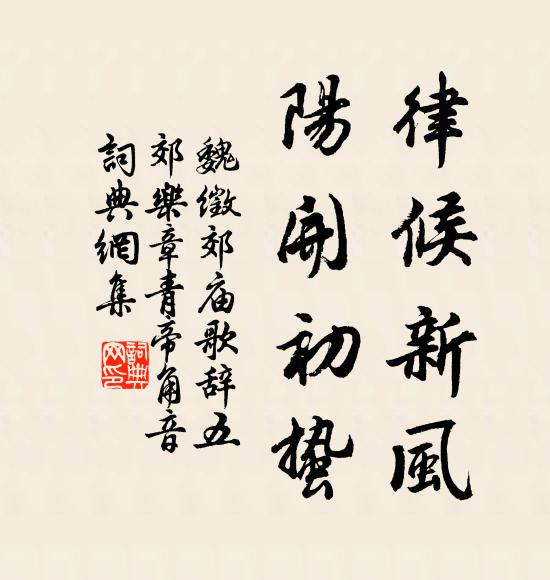 律候新風
陽開初蟄
魏徵郊庙歌辞五
郊樂章青帝角音
詞典網集
詞典
网印